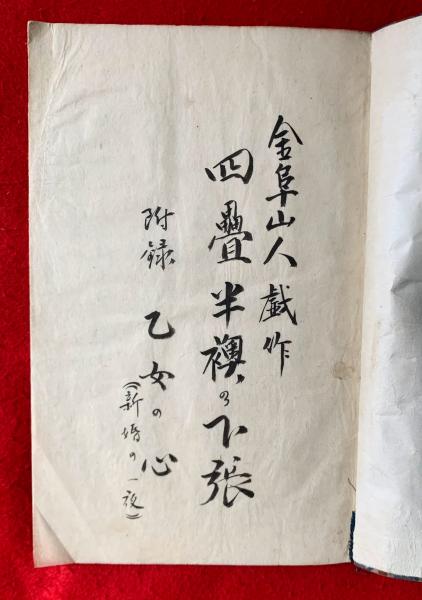 金阜山人戯作
四疊半襖の下張
附録 乙女の心
（新婚の一夜）